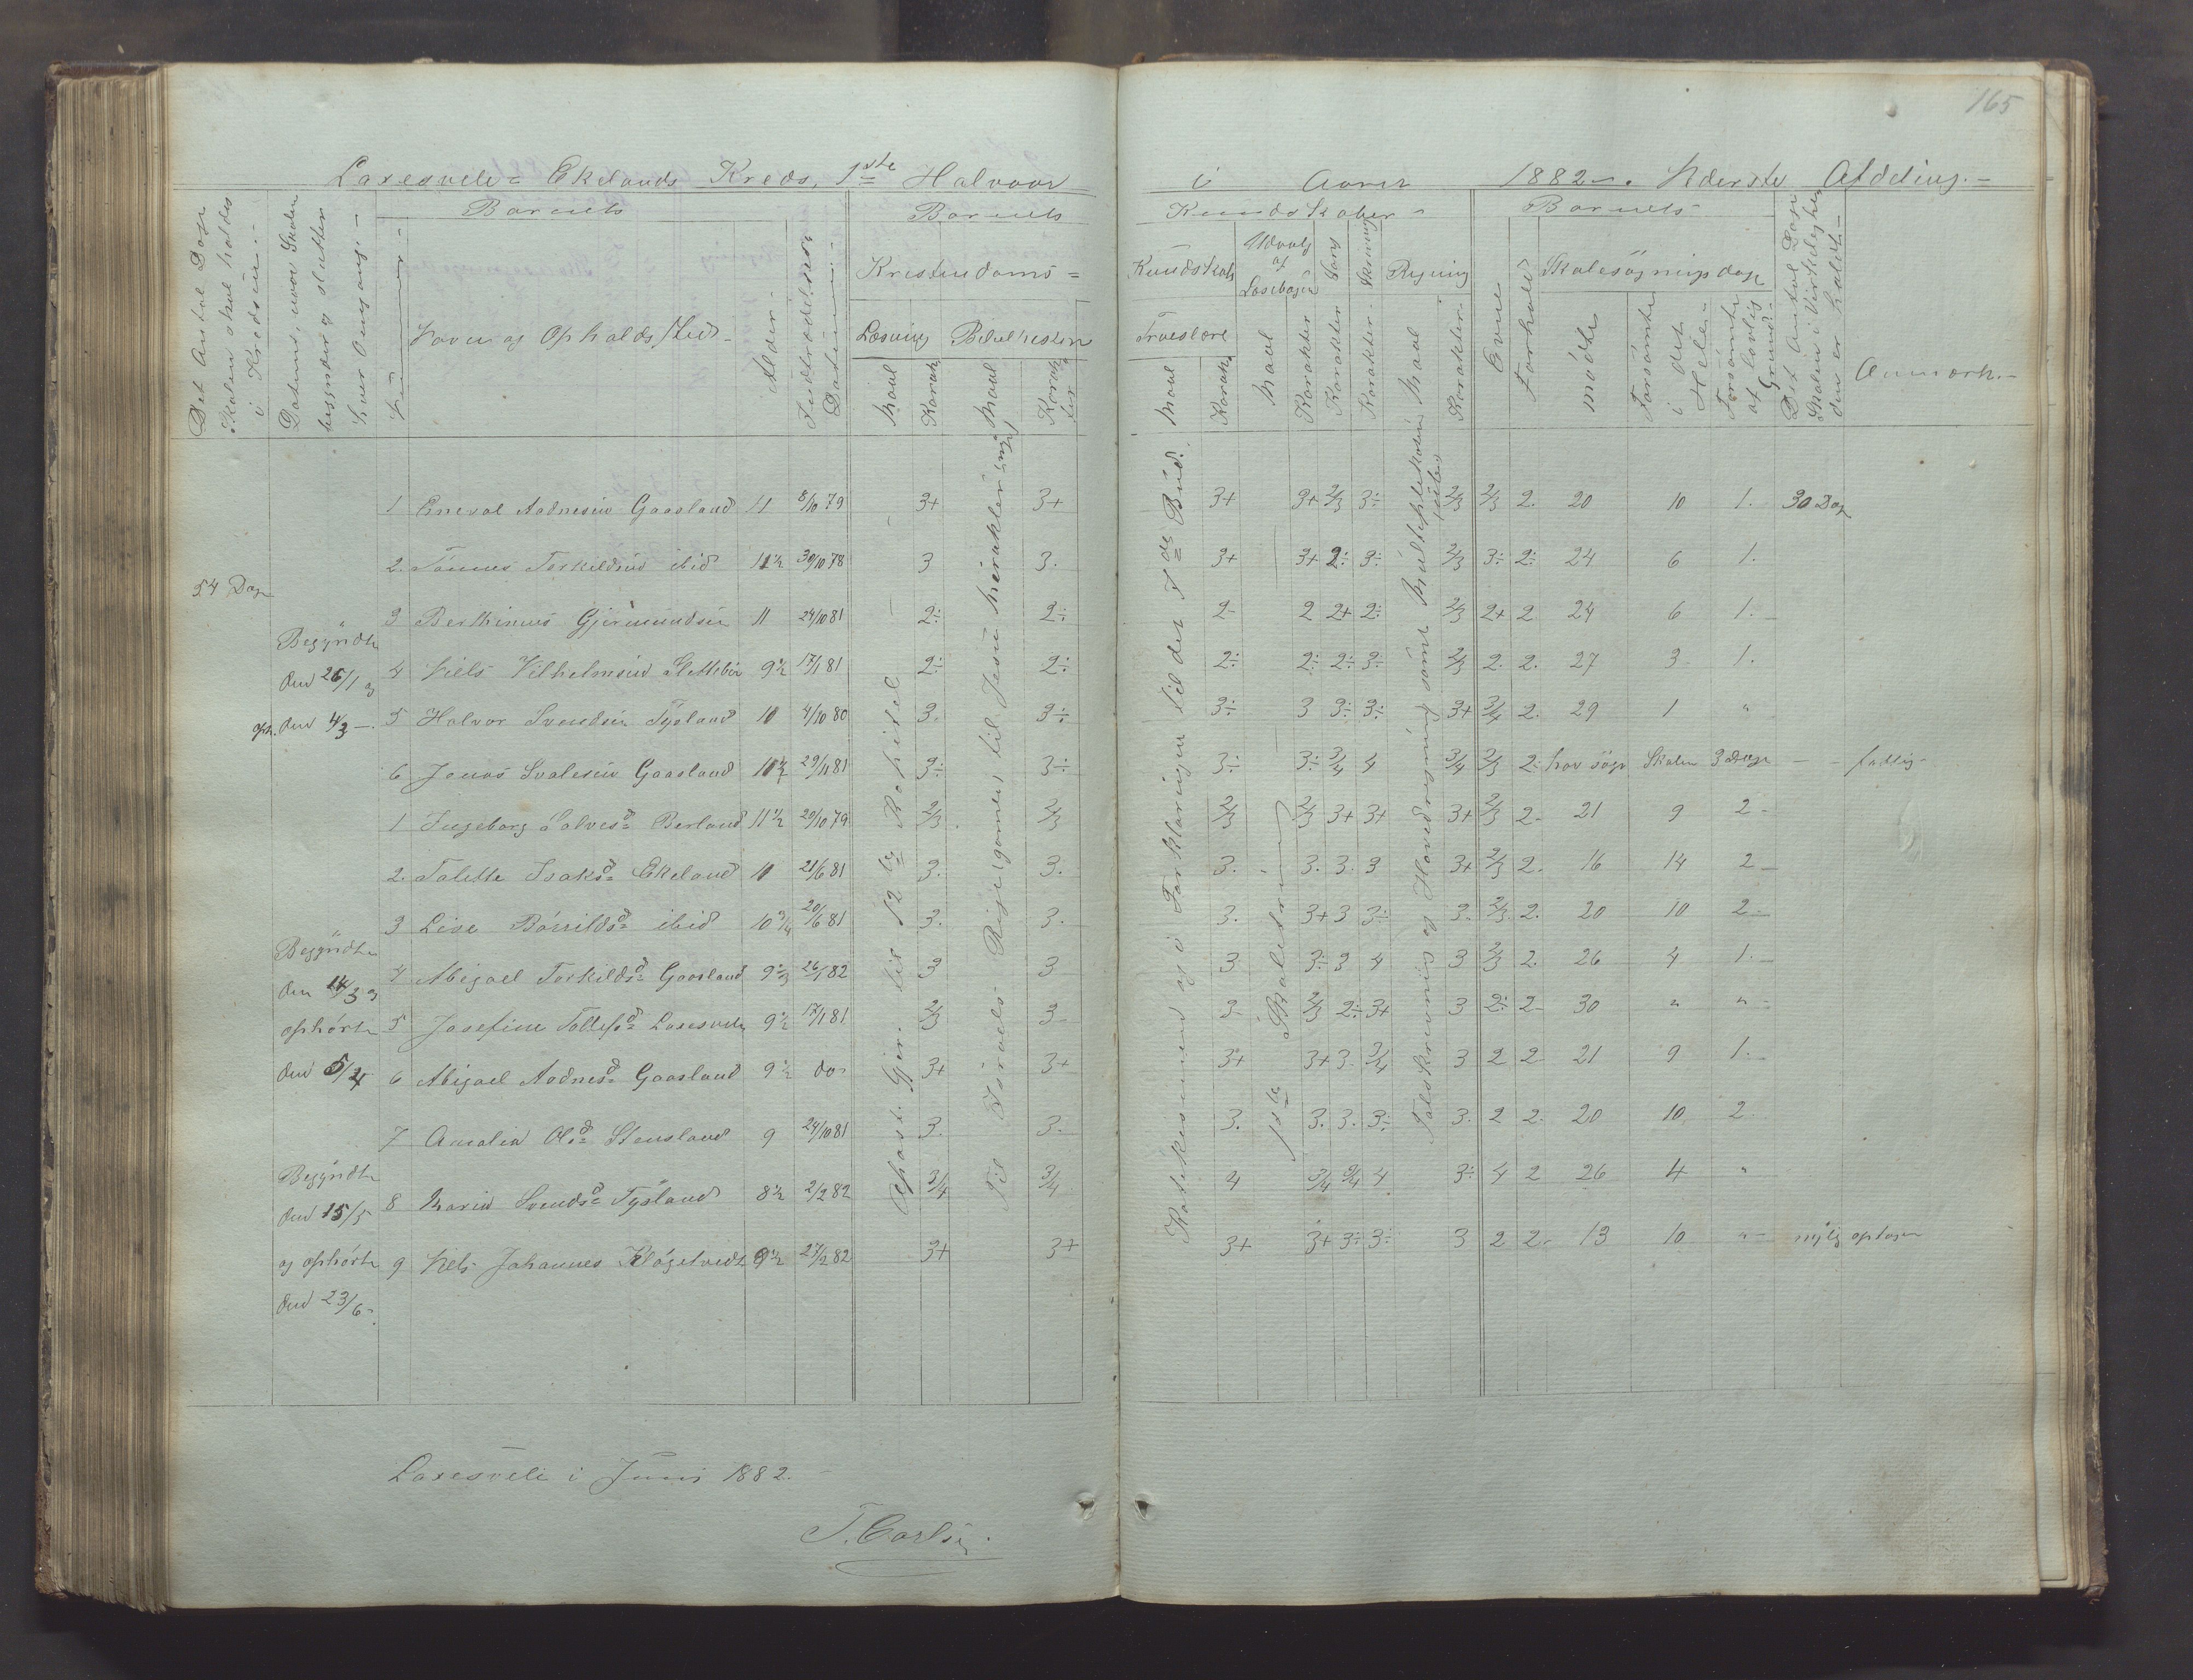 165
Laxesvele= Ekelands Kreds, 1ste Halvaar i Aaret 1882. Nederste Afdeling.
Det Antal Dage Skolen skal holdes i Kredsen.
Datums, naar Skolen begynder og slutter hver Omgang.
Barnets
Nummer
Navn og Opholds/Sted
Alder
Indtrædelses Datum
Barnets
Kristendoms=
Læsning
Bibelhistorie
Maal Karak.
Maal Karakter
Kundskaber
Kundskab
Troeslære
Maal Karak.
Udvalg af Læsebogen
Maal Karakter
Sang Karakter
Skrivning Karakter
Regning
Maal Karakter
Barnets
Evne
Forhold
Skolesøgningsdage
mødte
Forsømte i det Hele
Forsømte af lovlig Grund
Det Antal Dage Skolen i Virkeligheden er holdt
Anmærk.
54 Dage
Begyndte
den 26/1 og
oph. den 4/3
Begyndte
den 14/3 og
ophørte
den 5/4
Begyndte
den 15/5
og ophørte
den 23/6
Apost. Gjer. til 12te Kapitel
Til Israels Rige (gamle) til Jesu Mirakler (nye)
Katekismen og i Forklaringen til det 7de Bud.
1ste
Talskrivning og Hovedregning samt Multiplikation
1 Eneval Aadnesen Gaasland 11 8/10 79 3+ 3+ 3+ 3+ 2/3 3÷ 2/3 2/3 2. 20 10 1. 30 Dage
2. Tønnes Torkildsen ibid 11½ 30/10 78 3 3. 3+ 3+ 2÷ 3÷ 2/3 3÷ 2÷ 24 6 1.
3 Berthinius Gjermundsen 11 24/10 81 2÷ 2÷ 2- 2 2+ 2÷ 2/3 2+ 2 24 6 1.
4 Niels Vilhelmsen Slettebø 9½ 17/1 81 2÷ 2÷ 2÷ 2÷ 2÷ 3÷ 2/3 2. 2. 27 3 1.
5 Halvor Svendsen Tysland 10 4/10 80 3. 3÷ 3÷ 3 3÷ 3÷ 3+ 3/4 2. 29 1 "
6 Jonas Svalesen Gaasland 10½ 29/11 81 3÷ 3÷ 3÷ 3÷ 3/4 4 3/4 2/3 2÷ har søgt Skolen 3 Dage fattig
1 Ingeborg Salvesd. Berland 11½ 29/10 79 2/3 2/3 2/3 2/3 3+ 3+ 3+ 2/3 2- 21 9 2
2. Talette Isaksd. Ekeland 10 21/6 81 3. 3. 3. 3. 3. 3 3+ 2/3 2. 16 14 2
3 Live Børrildsd. ibid 10¾ 20/6 81 3. 3. 3. 3+ 3 3÷ 3. 2/3 2. 20 10 2
4 Abigael Torkildsd. Gaasland 9 26/1 82 3 3 3 3÷ 3 4 3 2/3 2. 26 4 1.
5 Josefine Tollefsd. Laxesvele 9½ 17/1 81 2/3 3 3- 2/3 2÷ 3+ 3 2÷ 2- 30 " "
6 Abigael Aadnesd. Gaasland 9½ do 3+ 3+ 3+ 3+ 3. 3/4 3 2 2 21 9 1.
7 Amalia Olsd. Stensland 9 24/10 81 3. 3. 3. 3. 3. 3÷ 3. 2 2. 20 10 2
8 Maria Svendsd. Tysland 8½ 2/2 82 3/4 3/4 4 3/4 3/4 4 3÷ 4 2 26 4 "
9 Nels Johannes Kløgetvedt 9½ 27/2 82 3+ 3+ 3+ 3+ 3÷ 3÷ 3 2 2. 13 10 " nylig optagen
Laxesvele i Juni 1882.
T. Carlsen.